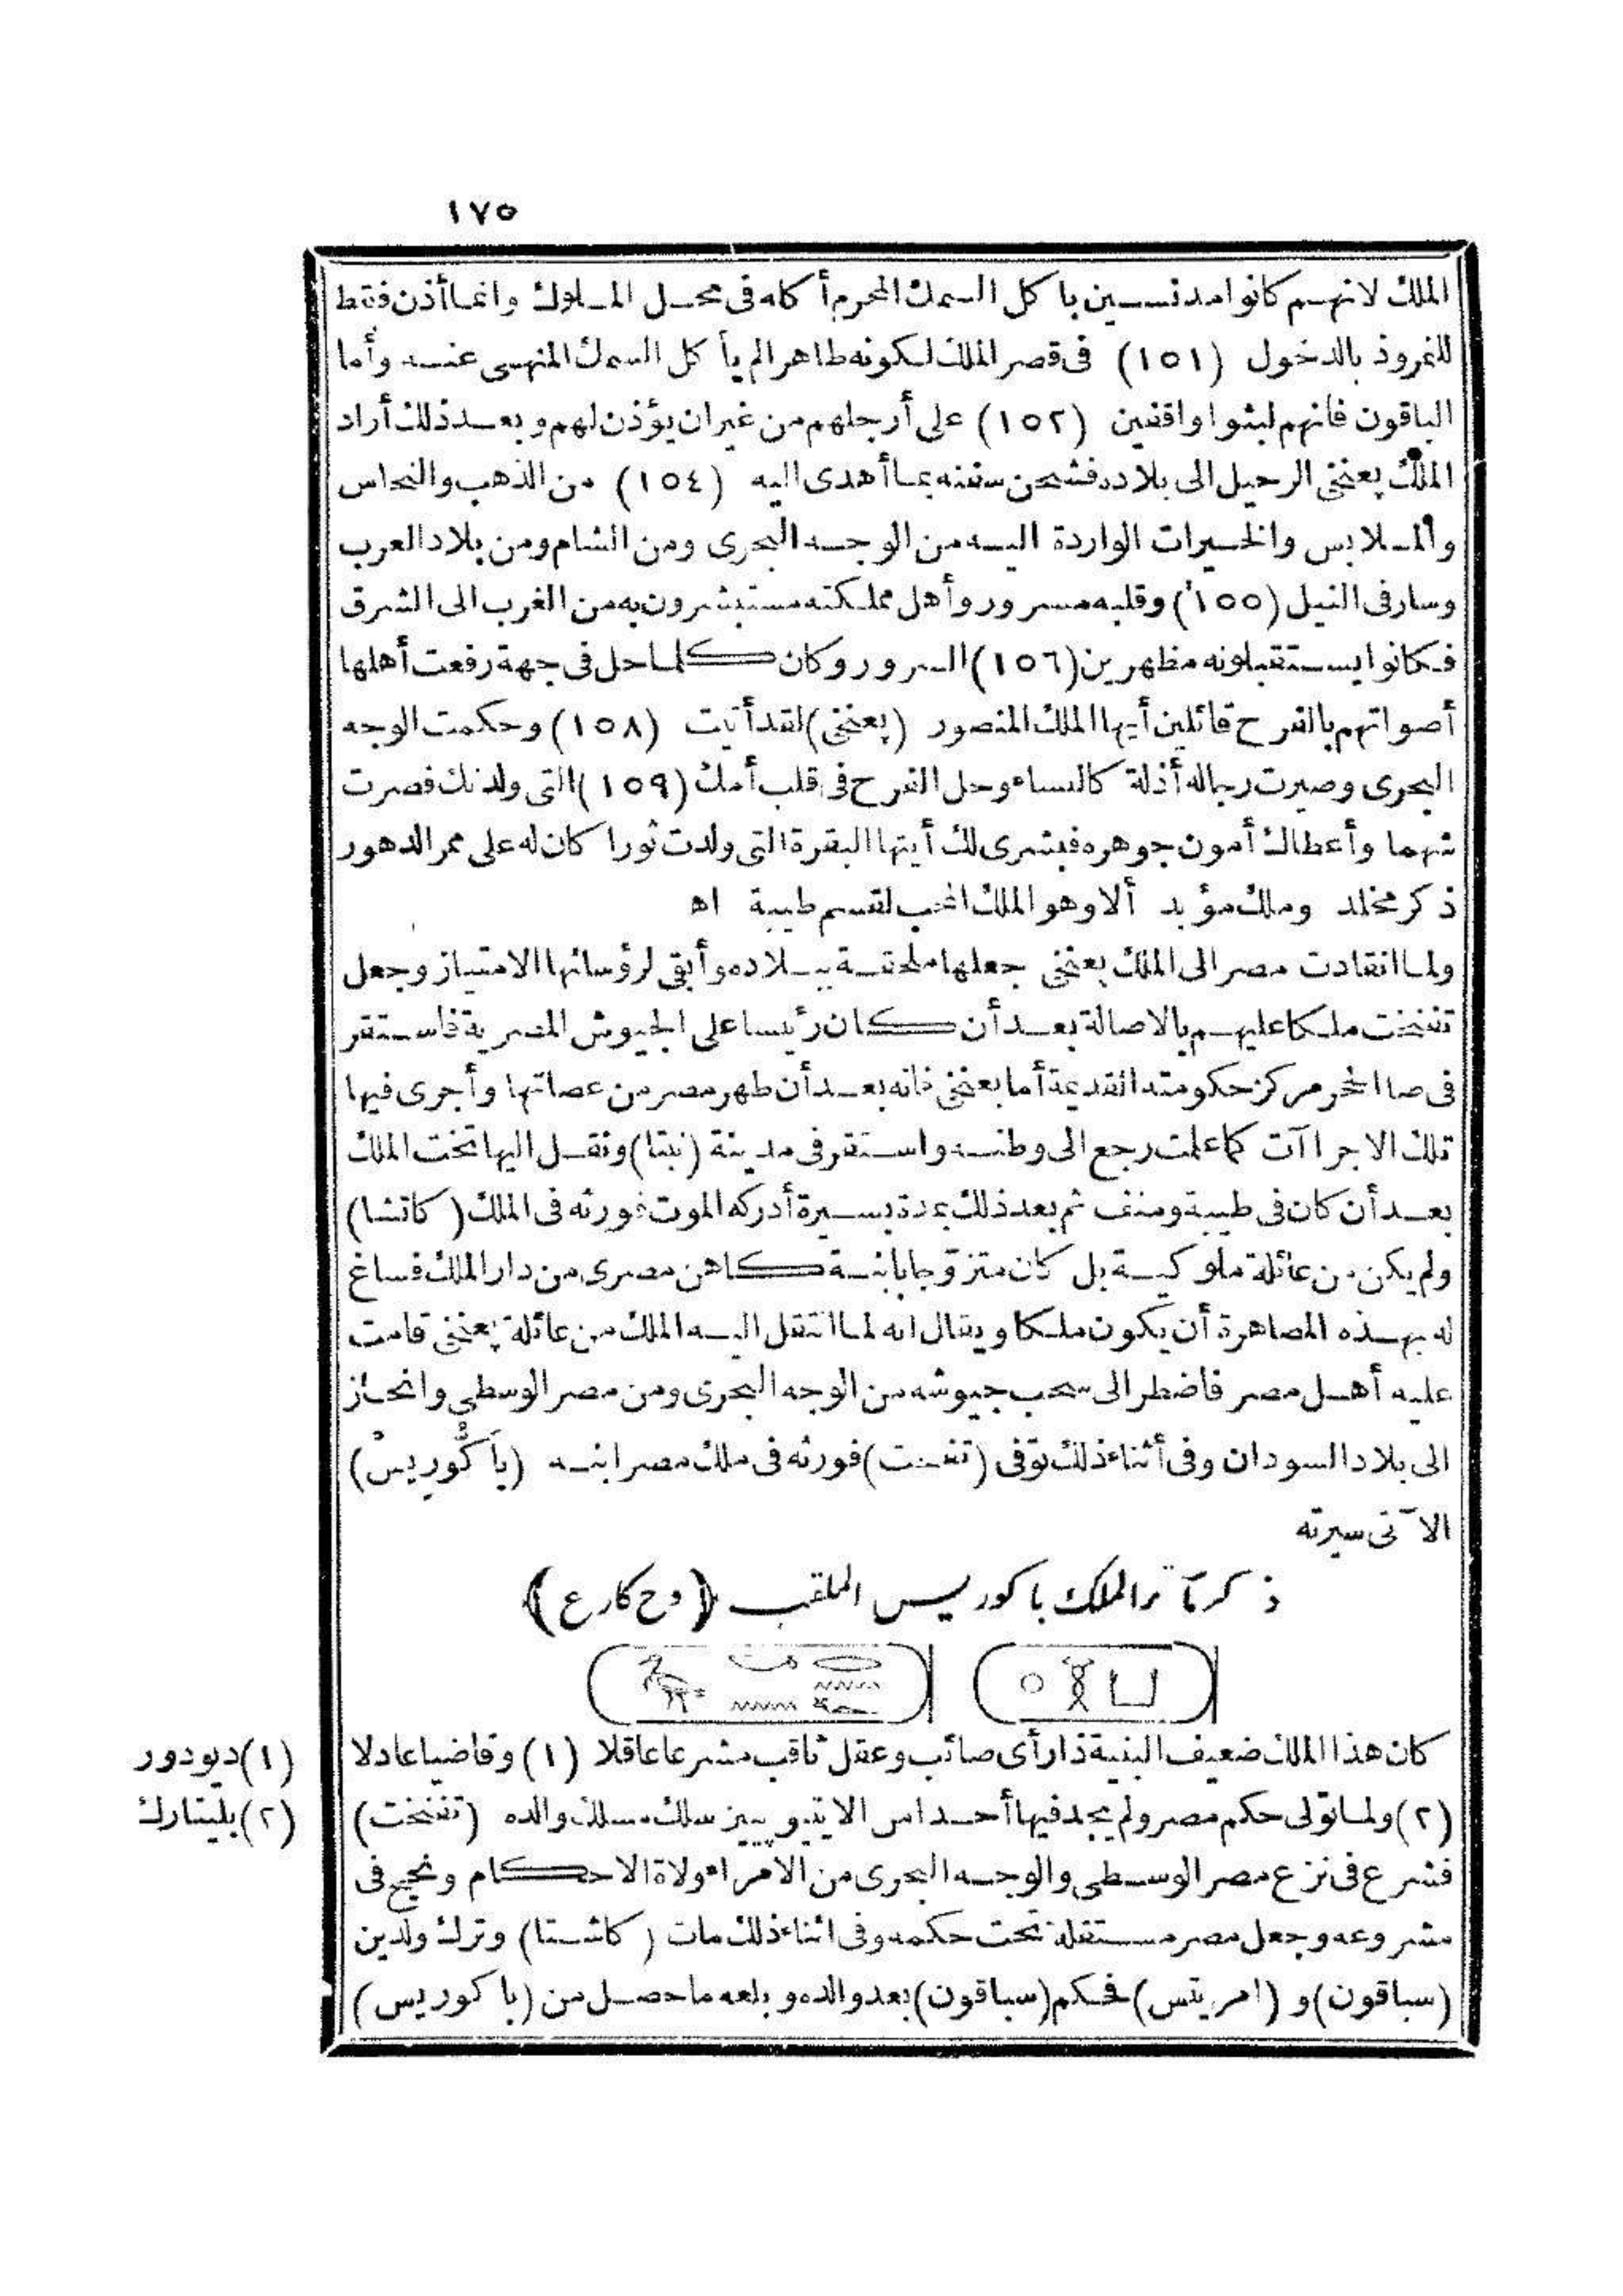 ١٧٥
الملك لانهم كانوا مدنسين باكل السمك المحرم أكله فى محل الملوك وانما أذن فقط
للنمروذ بالدخول (١٥١) فى قصر الملك لكونه طاهرا لم يأكل السمك المنهى عنه وأما
الباقون فانهم لبثوا واقفين (١٥٢) على أرجلهم من غير ان يؤذن لهم وبعد ذلك أراد
الملك پعنخى الرحيل الى بلاده فشحن سفنه بما أهدى اليه (١٥٤) من الذهب والنحاس
والملابس والخيرات الواردة اليه من الوجه البحرى ومن الشام ومن بلاد العرب
وسار فى النيل (١٥٥) وقلبه مسرور وأهل مملكته مستبشرون به من الغرب الى الشرق
فكانوا يستقبلونه مظهرين (١٥٦) السرور وكان كلما حل فى جهة رفعت أهلها
أصواتهم بالفرح قائلين أيها الملك المنصور (پعنخى) لقد أتيت (١٥٨) وحكمت الوجه
البحرى وصيرت رجاله أذلة كالنساء وحل الفرح فى قلب أمك (١٥٩) التى ولدتك فصرت
شهما وأعطاك أمون جوهره فبشرى لك أيتها البقرة التى ولدت ثورا كان له على ممر الدهور
ذكر مخلد وملك مؤبد ألا وهو الملك المحب لقسم طيبة اه
ولما انقادت مصر الى الملك پعنخى جعلها ملحقة ببلاده وأبقى لرؤسائها الامتياز وجعل
تفنخت ملكا عليهم بالاصالة بعد أن كان رئيسا على الجيوش المصرية فاستقر
فى صا الحجر مركز حكومته القديمة أما پعنخى فانه بعد أن طهر مصر من عصاتها وأجرى فيها
تلك الاجراآت كما علمت رجع الى وطنه واستقر فى مدينة (نبتا) ونقل اليها تخت الملك
بعد أن كان فى طيبة ومنف ثم بعد ذلك بمدة يسيرة أدركه الموت فورثه فى الملك (كاتشا)
ولم يكن من عائلة ملوكية بل كان متزوجا بابنة كاهن مصرى من دار الملك فساغ
له بهذه المصاهرة أن يكون ملكا ويقال انه لما انتقل اليه الملك من عائلة پعنخى قامت
عليه أهل مصر فاضطر الى سحب جيوشه من الوجه البحرى ومن مصر الوسطى وانحاز
الى بلاد السودان وفى أثناء ذلك توفى (تفنخت) فورثه فى ملك مصر ابنه (باكوريس)
الآتى سيرته
ذكر مآثر الملك باكوريس الملقب (وح كارع)
كان هذا الملك ضعيف البنية ذا رأى صائب وعقل ثاقب مشرعا عاقلا (١) وقاضيا عادلا
(١) ديودور
(٢) ولما تولى حكم مصر ولم يجد فيها أحدا من الايتيوپيين سلك مسلك والده (تفنخت)
(٢) بليتارك
فشرع فى نزع مصر الوسطى والوجه البحرى من الامراء ولاة الاحكام ونجح فى
مشروعه وجعل مصر مستقلة تحت حكمه وفى اثناء ذلك مات (كاشتا) وترك ولدين
(سباقون) و (امريتس) فحكم (سباقون) بعد والده وبلغه ما حصل من (باكوريس)